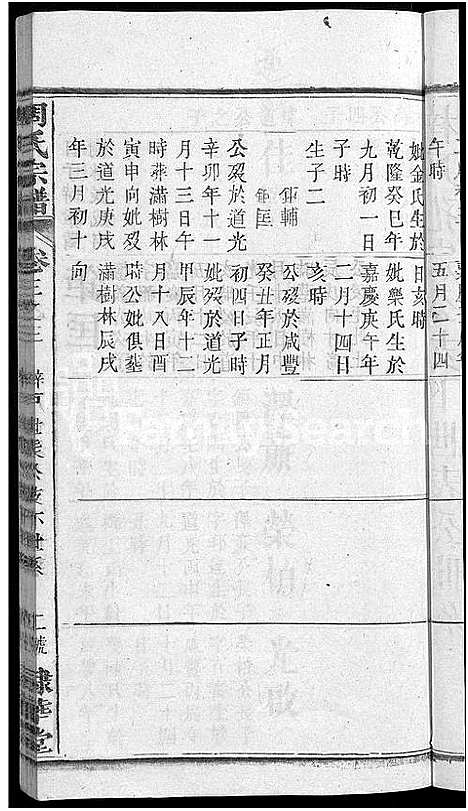 午時
妣金氏生於
乾隆癸巳年
九月初一日
子時
生子二
公歿於道光
辛卯年十一
月十三日午
時葬滿樹林
寅申向妣歿
於道光庚戌
年三月初十
五月二十四
日亥時
妣樂氏生於
嘉慶庚午年
二月十四日
亥時
公歿於咸豐
癸丑年正月
初四日子時
妣歿於道光
甲辰年十二
月十八日酉
時公妣俱塟
滿樹林辰戌
向
周氏宗譜